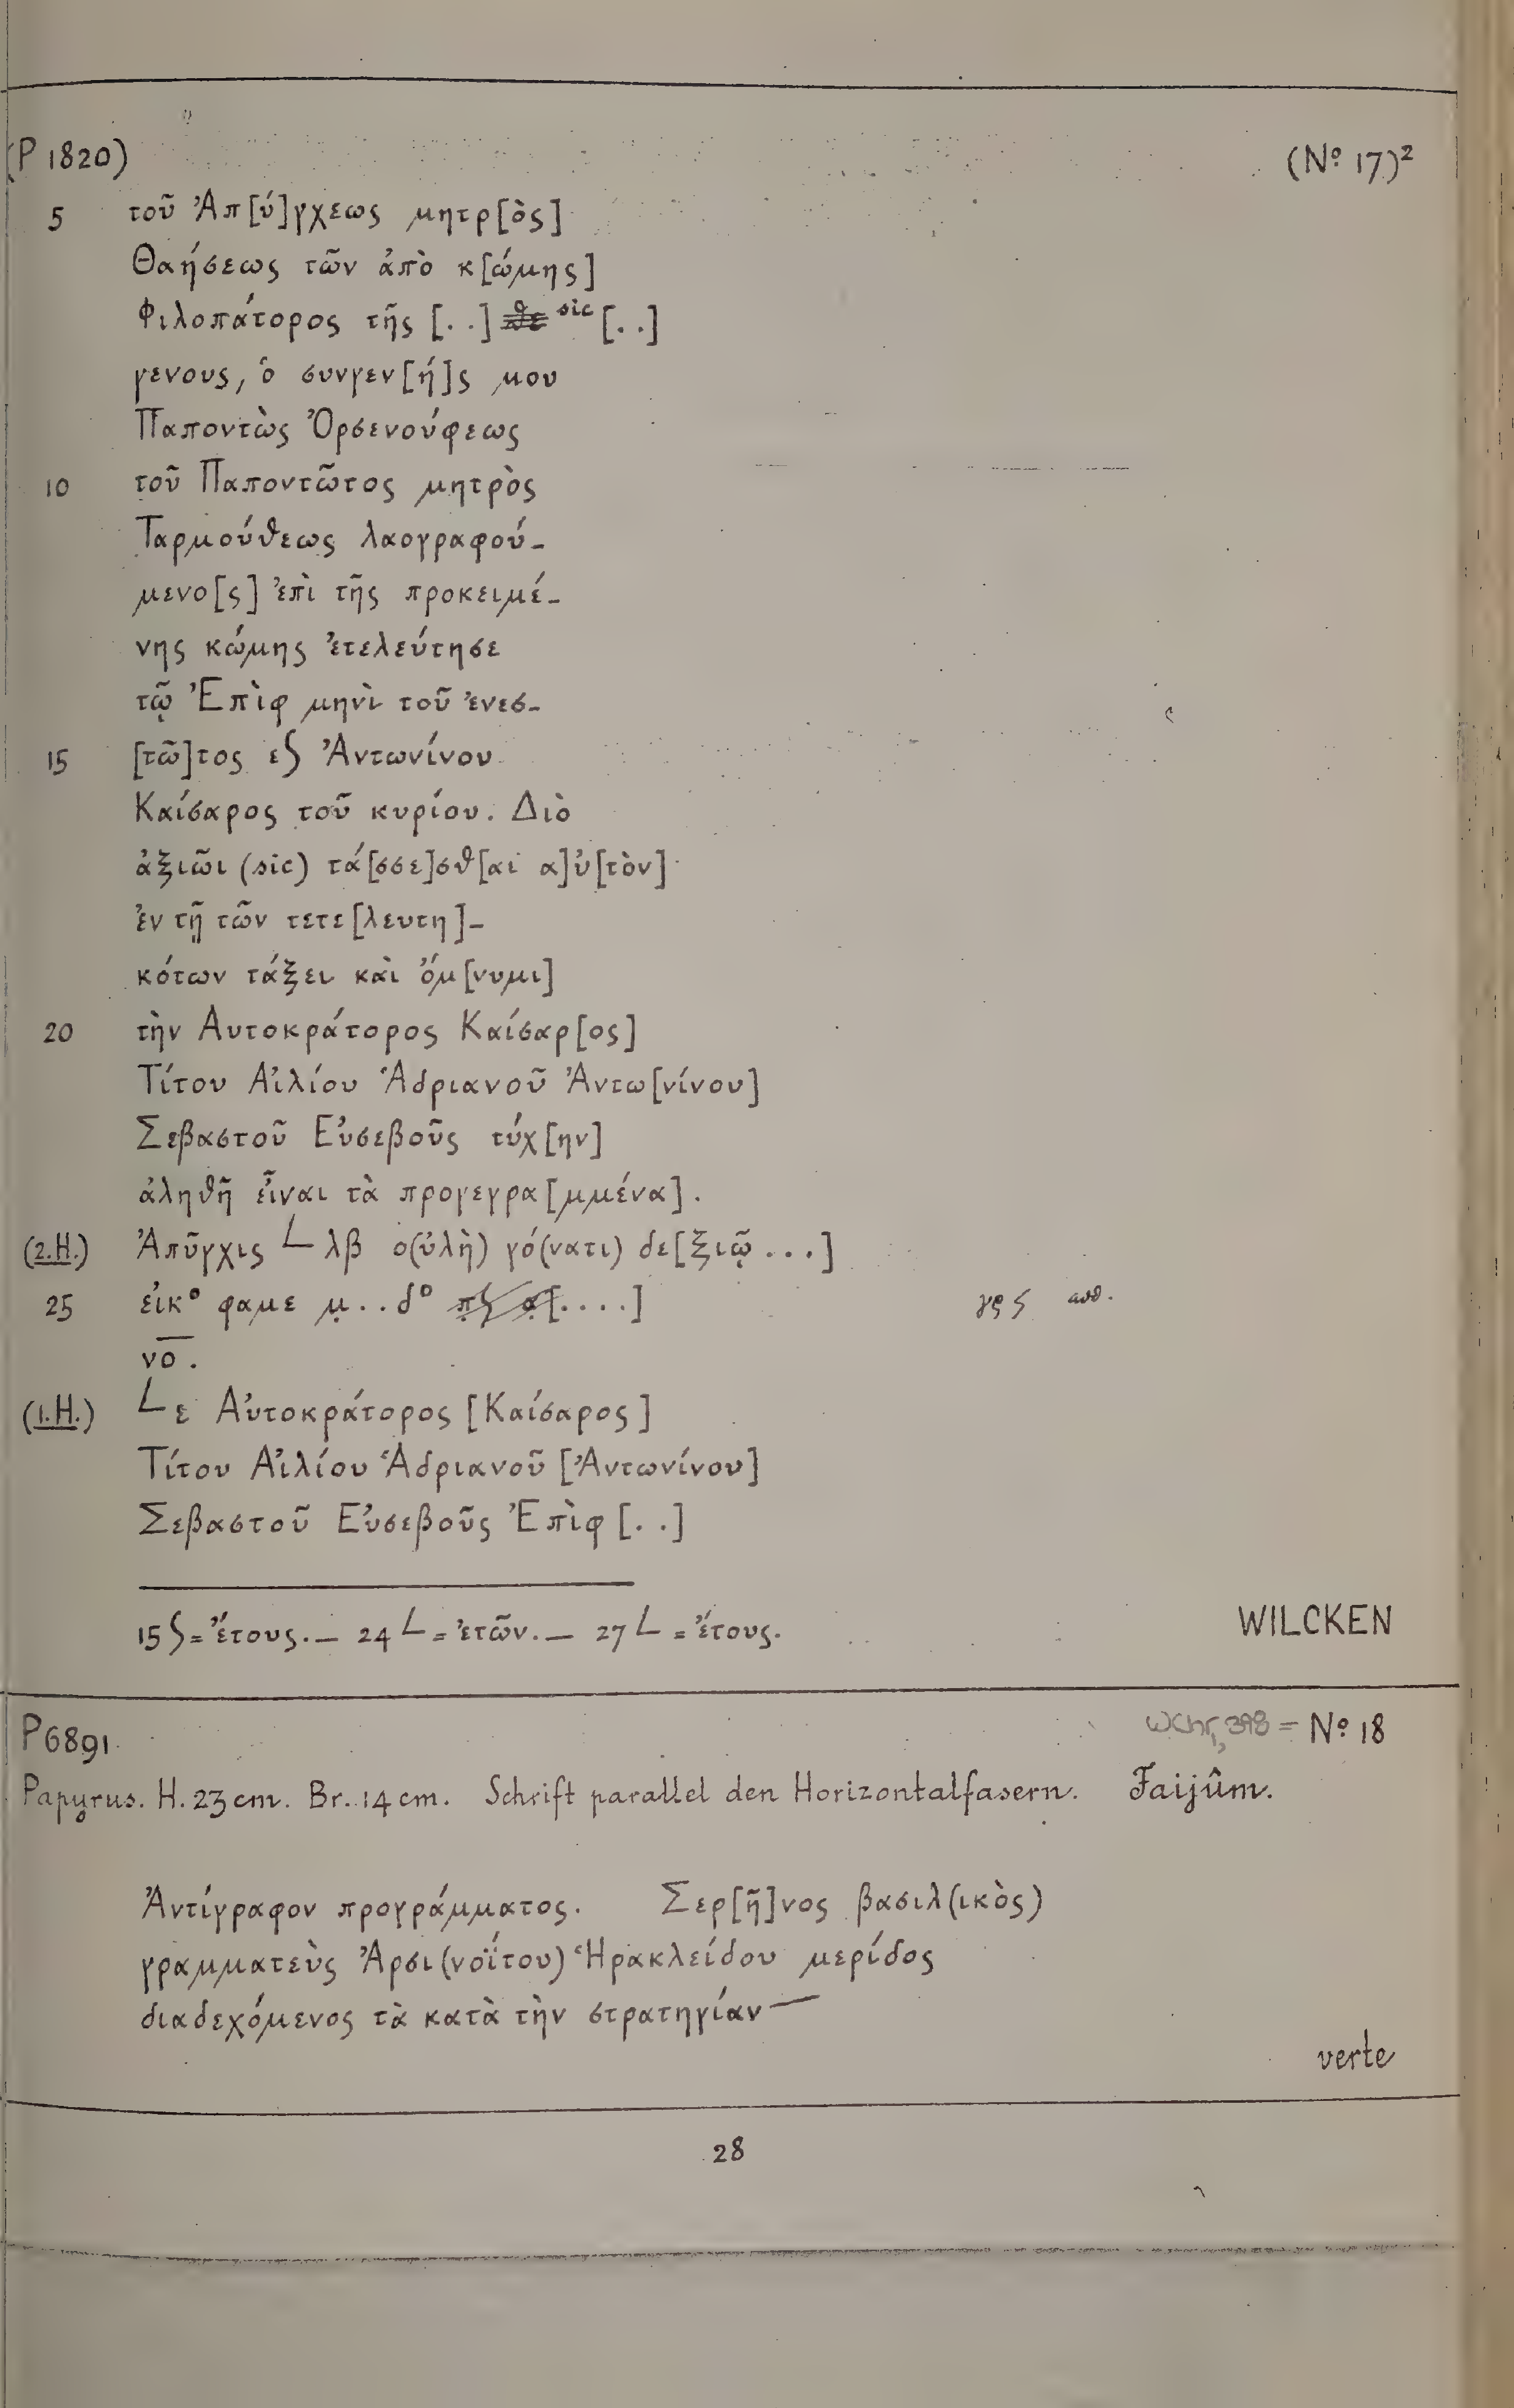 (P 1820) (No 17)2
5 τοῦ Ἀπ[ύ]γχεως μητρ[ὸς]
Θαήσεως τῶν ἀπὸ κ[ώμης]
Φιλοπάτορος τῆς [..] θε sic [..]
γενους, ὁ συνγεν[ή]ς μου
Παποντὼς Ὀρσενούφεως
10 τοῦ Παποντῶτος μητρὸς
Ταρμούθεως λαογραφού-
μενο[ς] ἐπὶ τῆς προκειμέ-
νης κώμης ἐτελεύτησε
τῷ Ἐπὶφ μηνὶ τοῦ ἐνεσ-
15 [τῶ]τος εS Ἀντωνίνου
Καίσαρος τοῦ κυρίου. Διὸ
ἀξιῶι (sic) τά[σσε]σθ[αι α]ὐ[τὸν]
ἐν τῇ τῶν τετε[λευτη]-
κότων τάξει καὶ ὄμ[νυμι]
20 τὴν Αυτοκράτορος Καίσαρ[ος]
Τίτου Αἰλίου Ἁδριανοῦ Ἀντω[νίνου]
Σεβαστοῦ Εὐσεβοῦς τύχ[ην]
ἀληθῆ εἶναι τὰ προγεγρα[μμένα].
(2.H.) Ἀπῦγχις L λβ ο(ὐλὴ) γό(νατι) δε[ξιῷ ...]
25 εἰκο φαμε μ̣..δο π̣S α̣[....]
ν̅ο̅.
(1.H.) L ε Αὐτοκράτορος [Καίσαρος]
Τίτου Αἰλίου Ἁδριανοῦ [Ἀντωνίνου]
Σεβαστοῦ Εὐσεβοῦς Ἐπὶφ [..]
15 S = ἔτους. — 24 L = ἐτῶν. — 27 L = ἔτους. WILCKEN
P 6891 WChr, 398 = No 18
Papyrus. H. 23 cm. Br. 14 cm. Schrift parallel den Horizontalfasern. Faijûm.
Ἀντίγραφον προγράμματος. Σερ[ῆ]νος βασιλ(ικὸς)
γραμματεὺς Ἀρσι(νοΐτου) Ἡρακλείδου μερίδος
διαδεχόμενος τὰ κατὰ τὴν στρατηγίαν —
verte
28